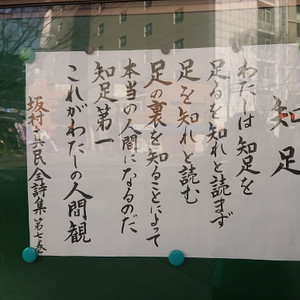 知足
わたしは知足を
足るを知れと読まず
足を知れと読む
足の裏を知ることによって
本当の人間になるのだ
知足第一
これがわたしの人間観
坂村真民全詩集第七巻